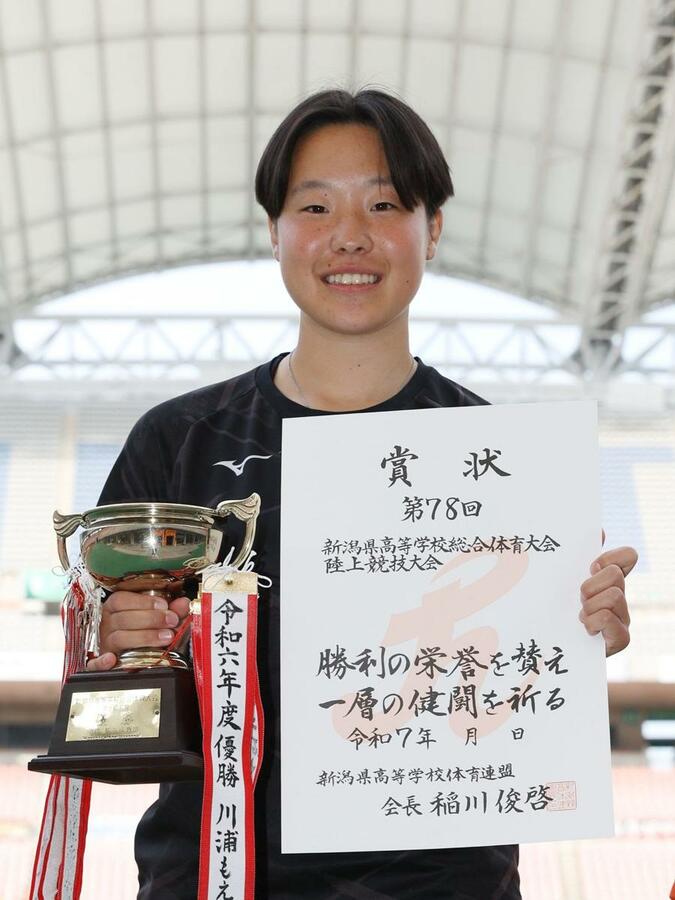 賞状
第78回
新潟県高等学校総合体育大会
陸上競技大会
勝利の栄誉を賛え
一層の健闘を祈る
令和7年 月 日
新潟県高等学校体育連盟
会長 稲川俊啓
令和六年度優勝 川浦もえ